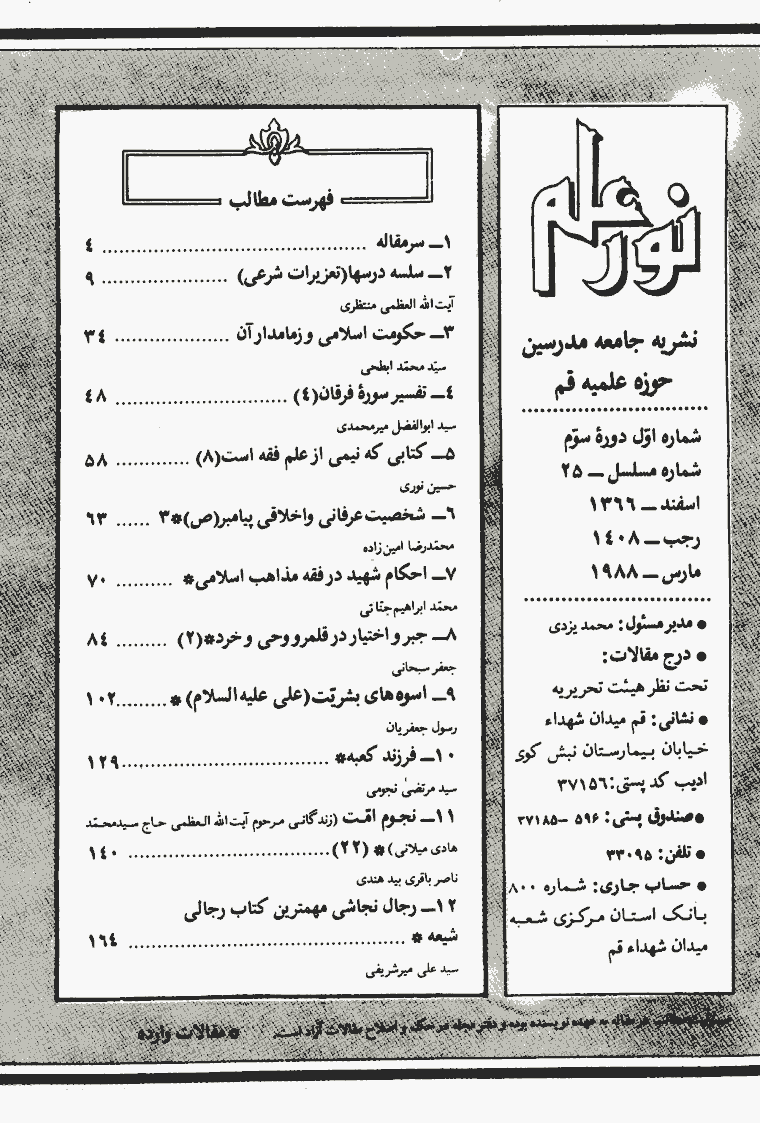 نور علم
نشریه جامعه مدرسین
حوزه علمیه قم
شماره اوّل دورهٔ سوّم
شماره مسلسل ــ ۲۵
اسفند ــ ۱۳۶۶
رجب ــ ۱۴۰۸
مارس ــ ۱۹۸۸
● مدیر مسئول: محمد یزدی
● درج مقالات:
تحت نظر هیئت تحریریه
● نشانی: قم میدان شهداء
خـیابان بـیمارسـتان نبش کوی
ادیب کد پستی: ۳۷۱۵۶
●صندوق پستی: ۵۹۶ –۳۷۱۸۵
● تلفن: ۳۳۰۹۵
● حسـاب جـاری: شـماره ۸۰۰
بـانـک اسـتـان مـرکـزی شـعـبه
میدان شهداء قم
فهرست مطالب
۱ــ سرمقاله ........ ۴
۲ــ سلسه درسها(تعزیرات شرعی) ........ ۹
آیت‌الله العظمی منتظری
۳ــ حکومت اسلامی و زمامدار آن ........ ۳۴
سیّد محمّد ابطحی
۴ــ تفسیر سورهٔ فرقان(۴) ........ ۴۸
سید ابوالفضل میرمحمدی
۵ــ کتابی که نیمی از علم فقه است(۸) ........ ۵۸
حسین نوری
۶ــ شخصیت عرفانی واخلاقی پیامبر(ص)*۳ ...... ۶۳
محمّدرضا امین‌زاده
۷ــ احکام شهید در فقه مذاهب اسلامی* ........ ۷۰
محمّد ابراهیم جنّاتی
۸ــ جبر و اختیار در قلمرو وحی و خرد*(۲) ........ ۸۴
جعفر سبحانی
۹ــ اسوه‌های بشریّت(علی علیه السلام) *........ ۱۰۲
رسول جعفریان
۱۰ــ فرزند کعبه* ........ ۱۲۹
سید مرتضیٰ نجومی
۱۱ــ نجـوم امّـت (زندگانـی مـرحوم آیت‌الله العـظمی حـاج سـیدمحـمّد
هادی میلانی) * (۲۲) ........ ۱۴۰
ناصر باقری بید هندی
۱۲ــ رجال نجاشی مهمترین کتاب رجالی
شیعه * ........ ۱۶۴
سید علی میرشریفی
هر مقاله به عهده نویسنده بوده و دفتر مجله در حک و اصلاح مقالات آزاد است.
● مقالات وارده